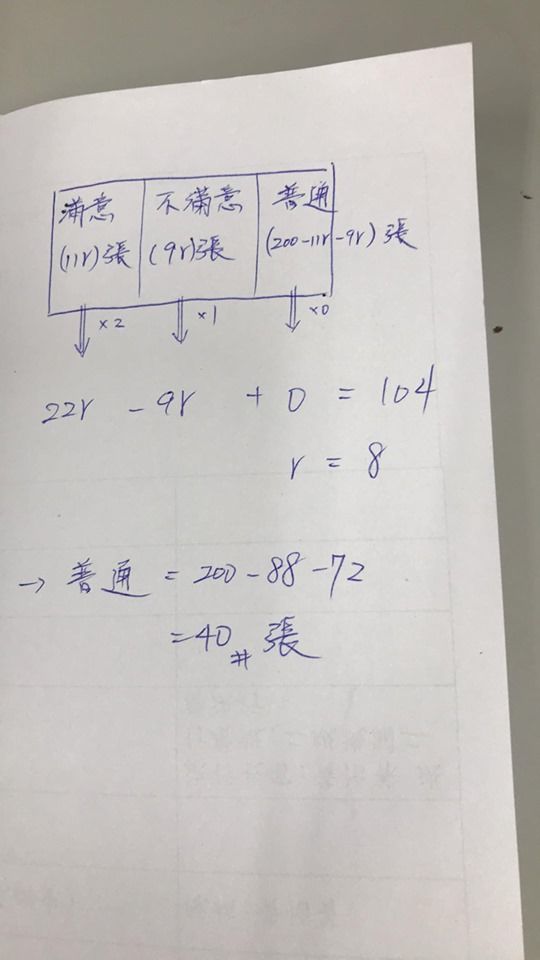 滿意 不滿意 普通
(11r)張 (9r)張 (200-11r-9r)張
×2 ×1 ×0
22r - 9r + 0 = 104
r = 8
→ 普通 = 200-88-72
=40# 張